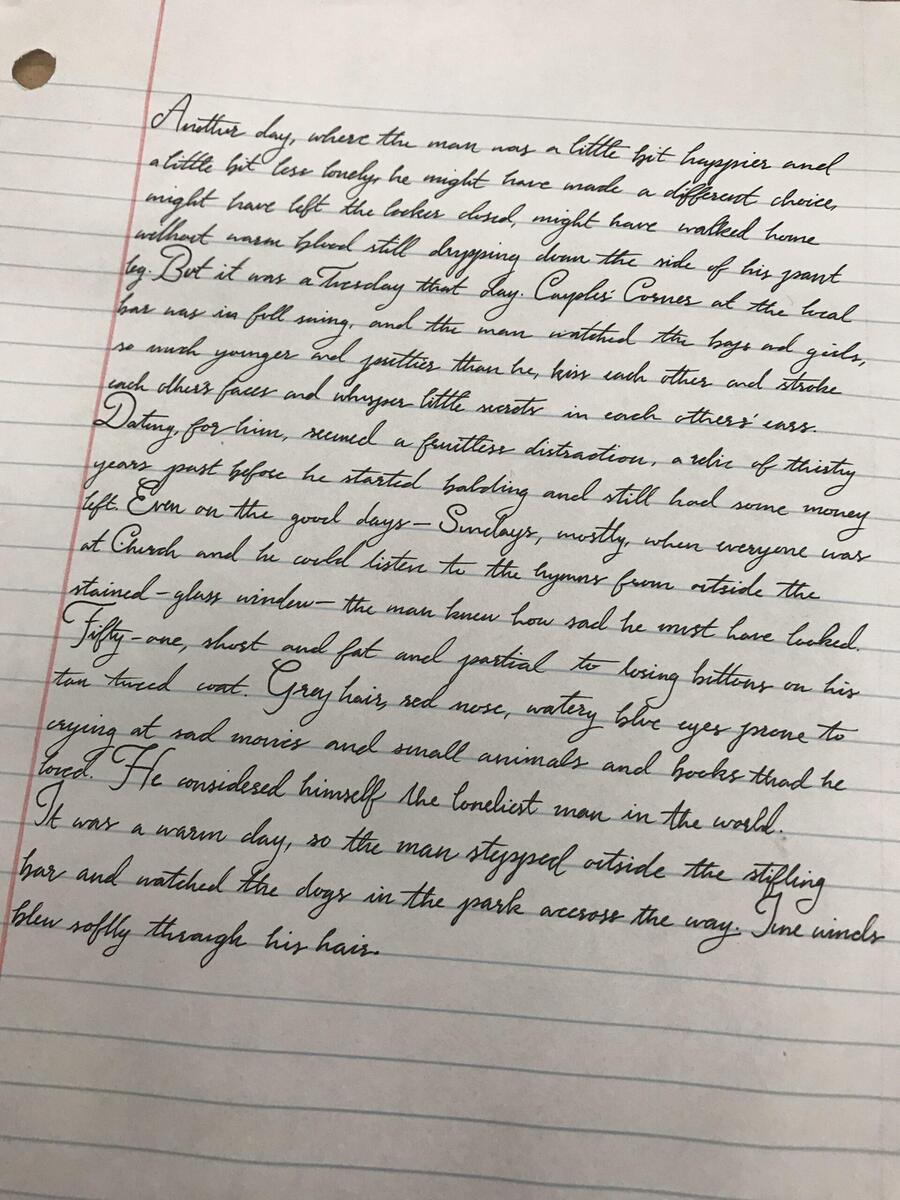 Another day, where the man was a little bit happier and
a little bit less lonely, he might have made a different choice,
might have left the locker closed, might have walked home
without warm blood still dripping down the side of his pant
leg. But it was a Tuesday that day. Couples' Corner at the local
bar was in full swing, and the man watched the boys and girls,
so much younger and prettier than he, kiss each other and stroke
each others faces and whisper little secrets in each others' ears.
Dating, for him, seemed a fruitless distraction, a relic of thirty
years past before he started balding and still had some money
left. Even on the good days — Sundays, mostly, when everyone was
at Church and he could listen to the hymns from outside the
stained-glass window — the man knew how sad he must have looked.
Fifty-one, short and fat and partial to losing buttons on his
tan tweed coat. Grey hair, red nose, watery blue eyes prone to
crying at sad movies and small animals and books thad he
loved. He considered himself the loneliest man in the world.
It was a warm day, so the man stepped outside the stifling
bar and watched the dogs in the park accross the way. June winds
blew softly through his hair.